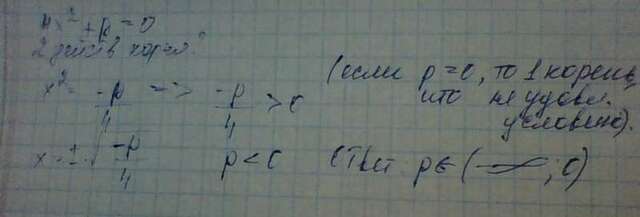 4x² + p = 0
2 действ корня?
x² = -p/4 => -p/4 > 0
(если p=0, то 1 корень,
что не удовл.
условию).
x = ± √(-p/4)
p < 0
Ответ p∈(-∞; 0)